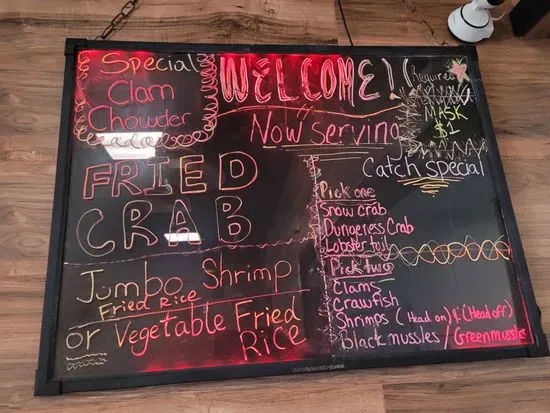 Special
Clam
Chowder
WELCOME!
Required
MASK
$1
Now serving
FRIED
CRAB
Jumbo Shrimp
Fried Rice
or Vegetable Fried
Rice
Catch special
Pick one
Snow crab
Dungeness Crab
Lobster tail
Pick two
Clams
Crawfish
Shrimps (Head on) & (Head off)
Black mussles / Green mussles